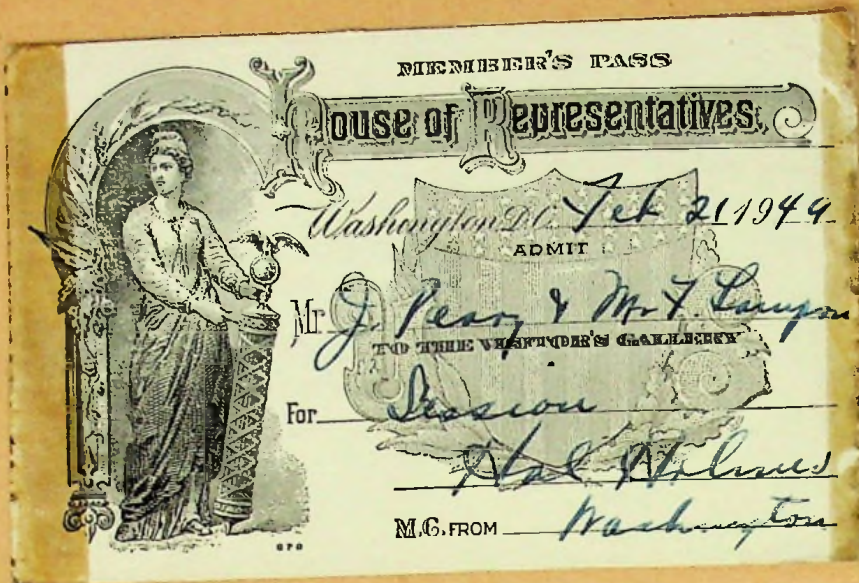 MEMBER'S PASS
House of Representatives,
Washington D.C. Feb 21 1949
ADMIT
Mr. J. Perry & Mr. F. Lampson
TO THE VISITOR'S GALLERY
For Session
Hal Holmes
M.C. FROM Washington
GPO